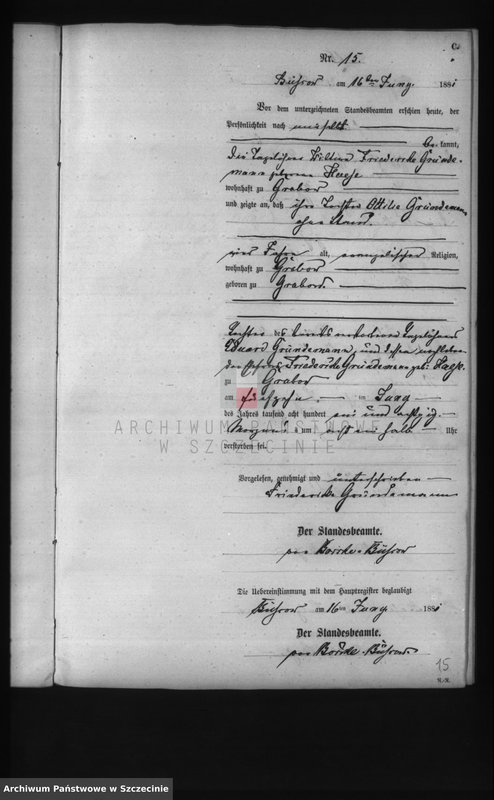 C.
Nr. 15.
Bührow am 16ten Juny 1881
Vor dem unterzeichneten Standesbeamten erschien heute, der
Persönlichkeit nach
be kannt,
die Tagelöhner Wittwe Friederike Gründe-
mann geborene Haese
wohnhaft zu Grabow
und zeigte an, daß ihre Tochter Ottilie Gründemann
ohne Stand,
vier Jahre alt, evangelischer Religion,
wohnhaft zu Grabow
geboren zu Grabow
Tochter des bereits verstorbenen Tagelöhners
Eduard Gründemann und dessen
Friederike Gründemann geb: Haese
zu Grabow
am fünfzehn ten Juny
des Jahres tausend acht hundert ein und achtzig
Morgens um acht ein halb Uhr
verstorben sei.
Vorgelesen, genehmigt und unterschrieben
Friederike Gründemann
Der Standesbeamte.
von Borcke-Bührow
Die Uebereinstimmung mit dem Hauptregister beglaubigt
Bührow am 16ten Juny 1881
Der Standesbeamte.
von Borcke-Bührow
15
ARCHIWUM PAŃSTWOWE
W SZCZECINIE
Archiwum Państwowe w Szczecinie